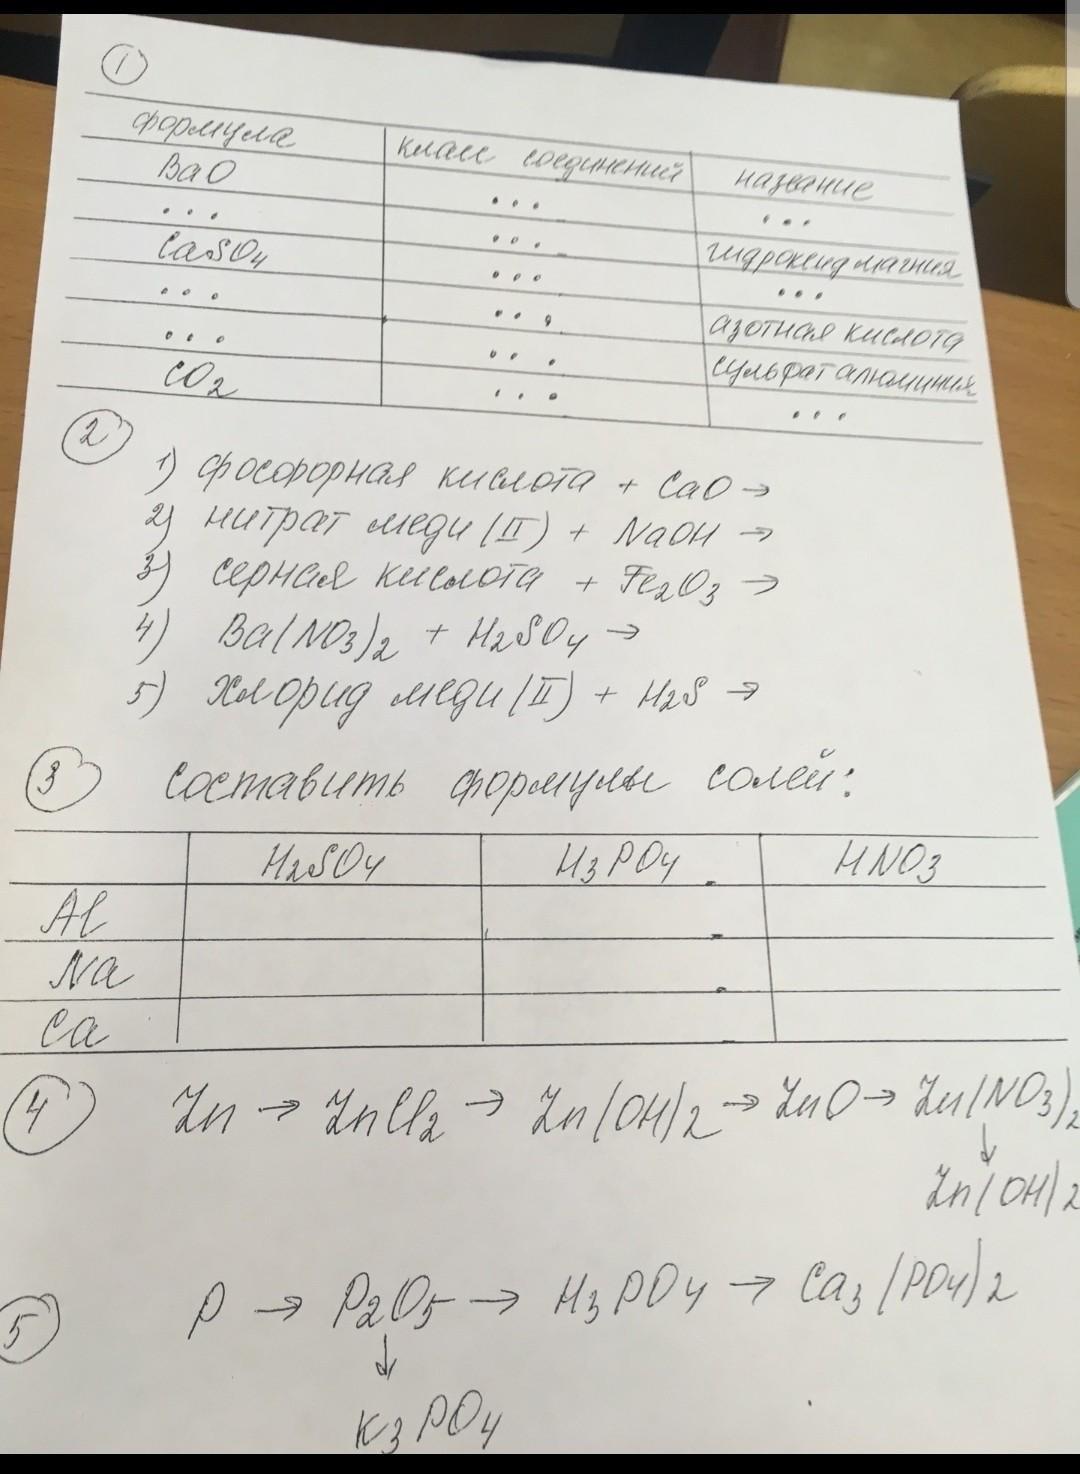 1
формула класс соединений название
BaO ... ...
... ... гидроксид магния
CaSO4 ... ...
... ... азотная кислота
... ... сульфат алюминия
CO2 ... ...
2
1) фосфорная кислота + CaO →
2) нитрат меди (II) + NaOH →
3) серная кислота + Fe2O3 →
4) Ba(NO3)2 + H2SO4 →
5) хлорид меди (II) + H2S →
3 составить формулы солей:
H2SO4 H3PO4 HNO3
Al
Na
Ca
4 Zn → ZnCl2 → Zn(OH)2 → ZnO → Zn(NO3)2
↓
Zn(OH)2
5 P → P2O5 → H3PO4 → Ca3(PO4)2
↓
K3PO4